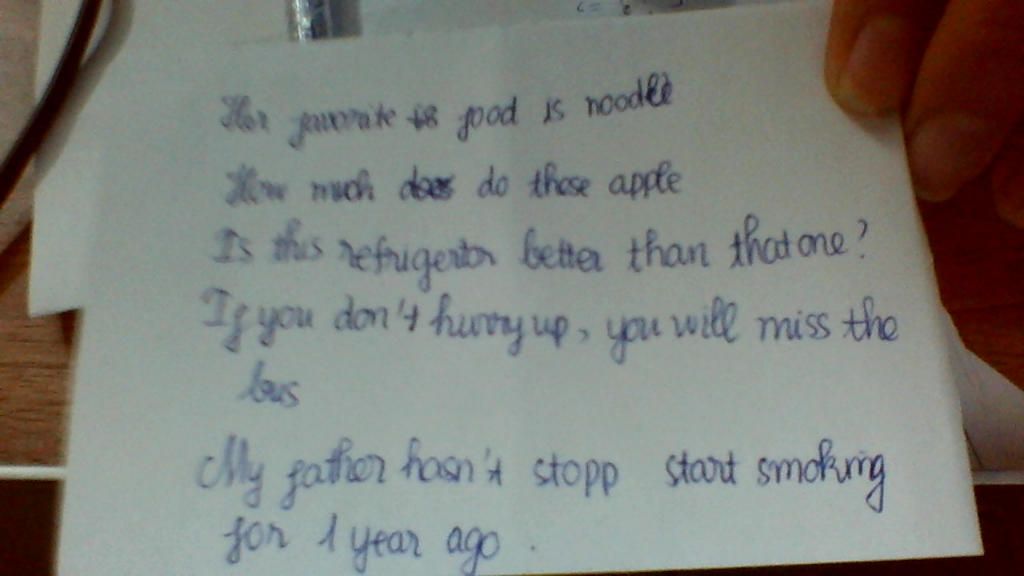 Her favorite is food is noodle
How much does do those apple
Is this refrigertor better than that one?
If you don't hurry up, you will miss the
bus
My father hasn't stopp start smoking
for 1 year ago.